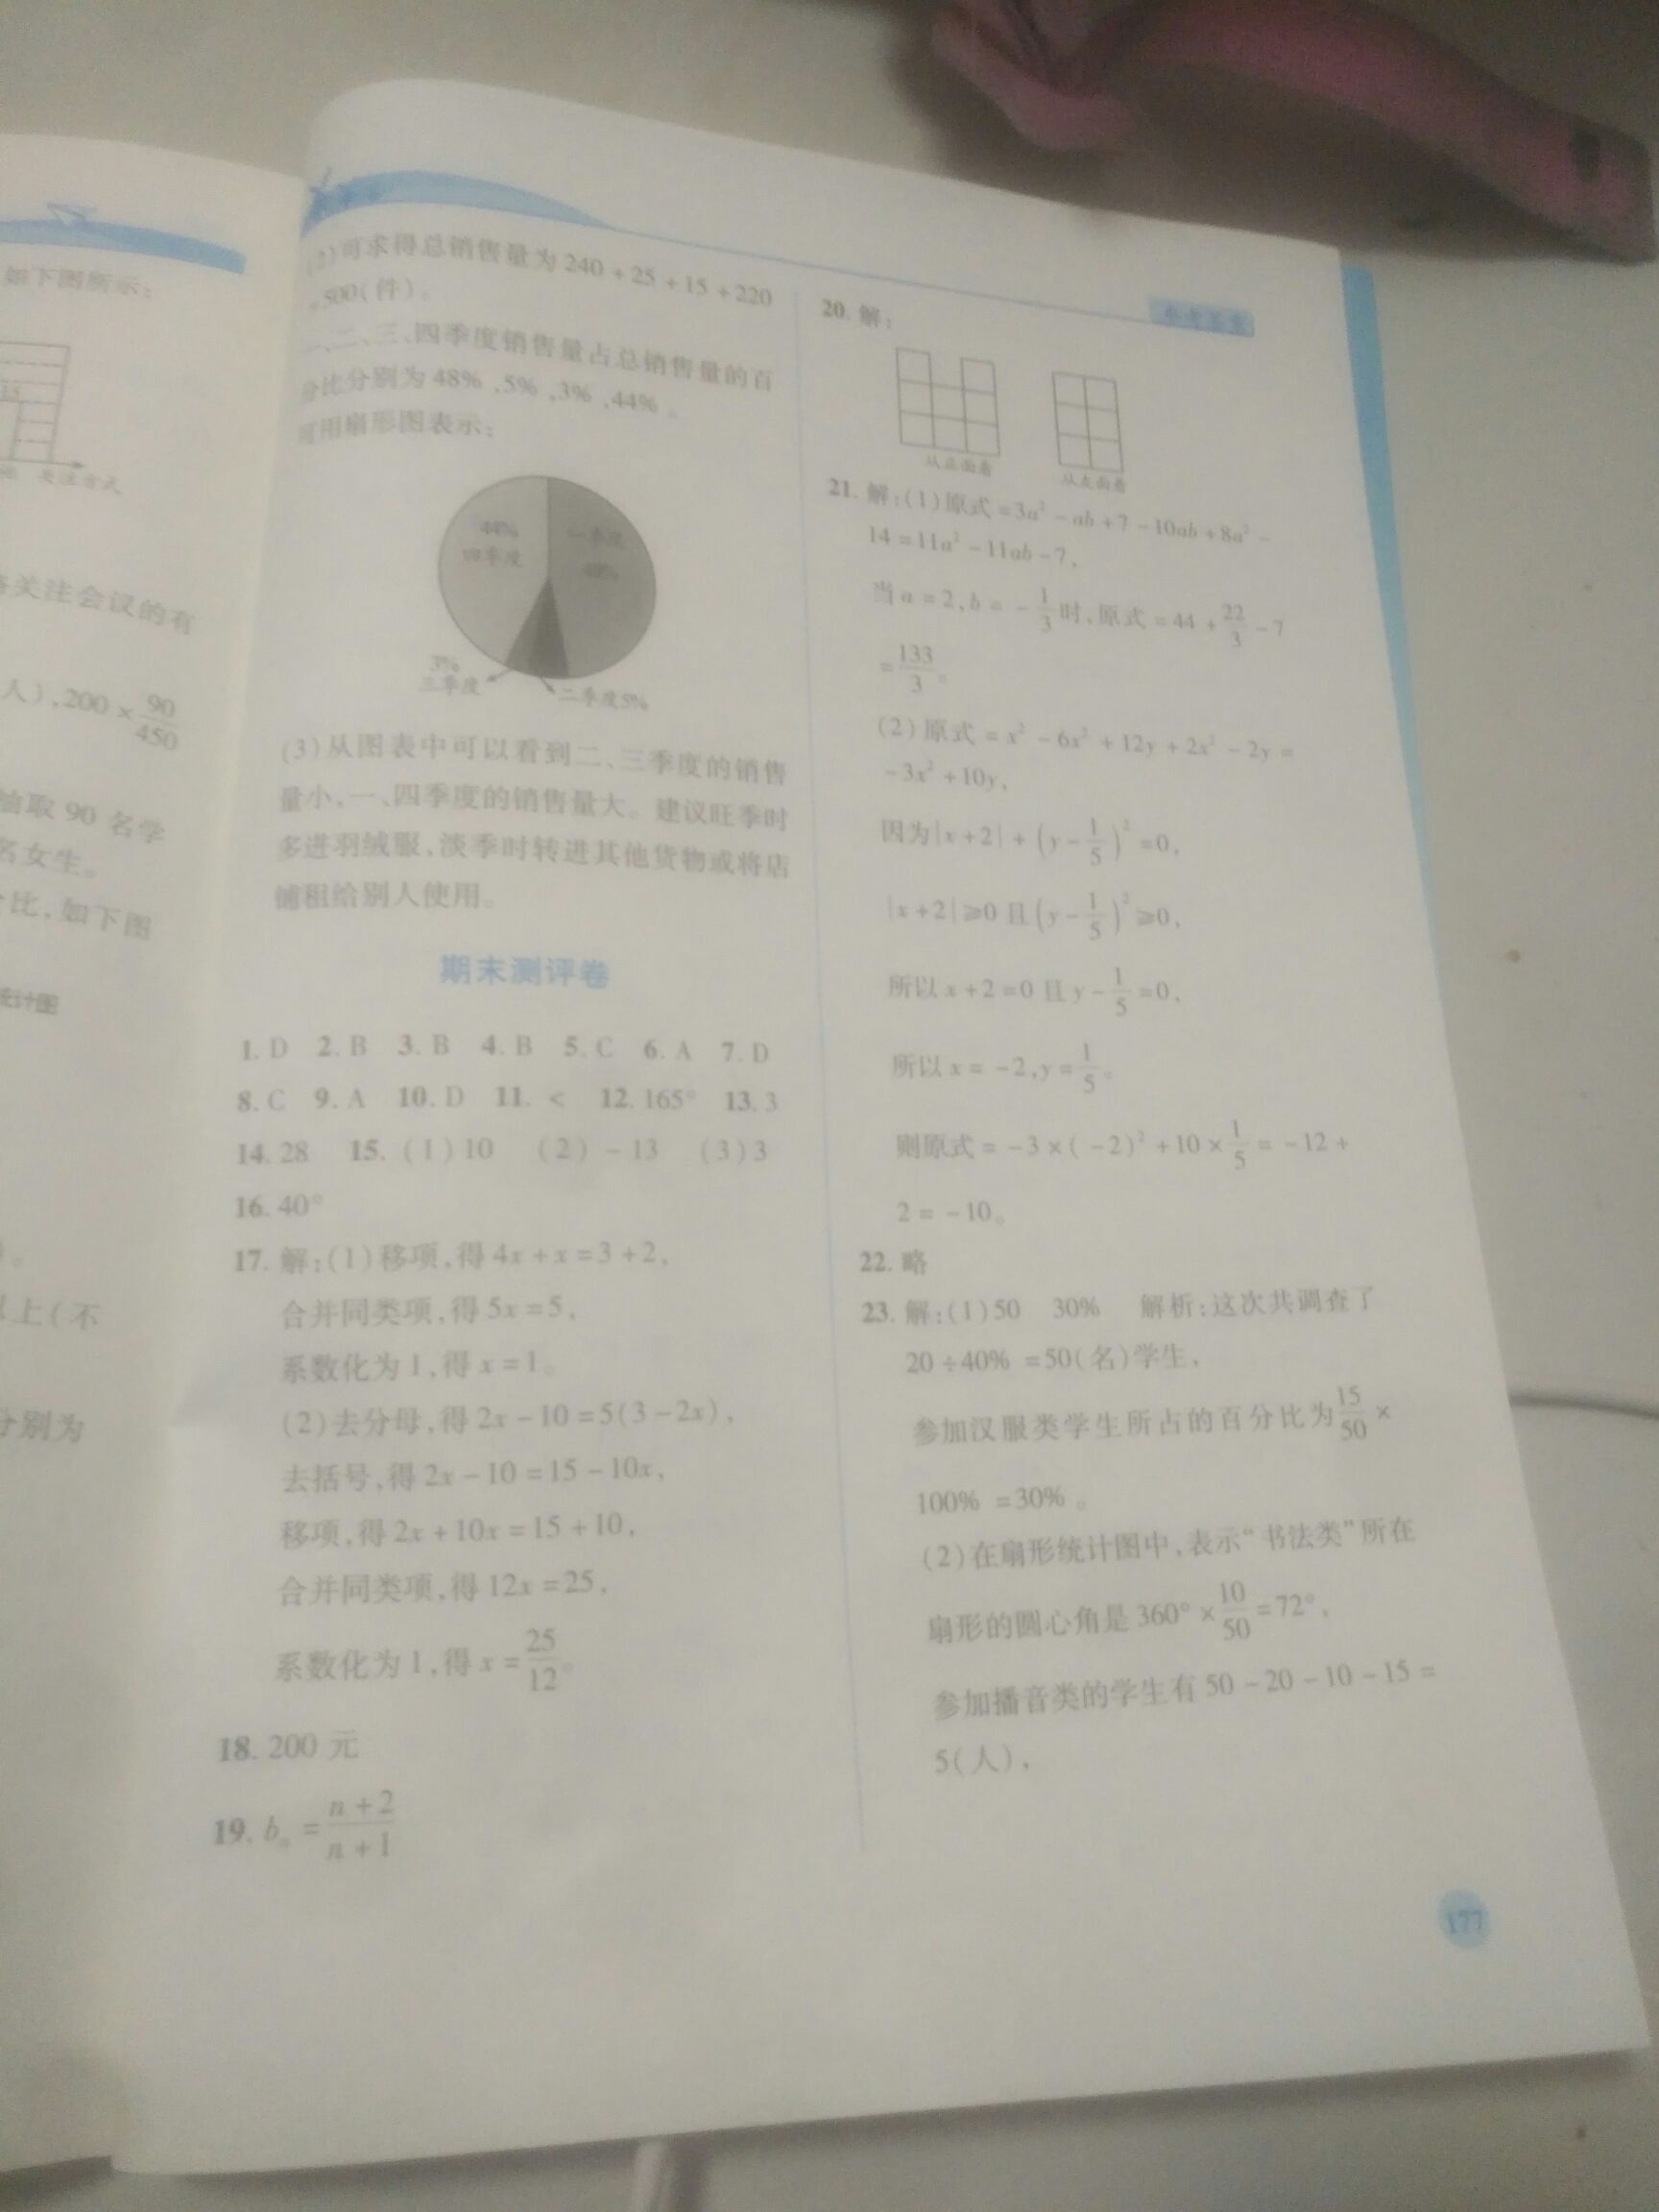 如下图所示：
关注方式
关注会议的有
人),200×90/450
抽取 90 名学
名女生。
比,如下图
统计图
以上(不
分别为
参考答案
(2)可求得总销售量为 240 + 25 + 15 + 220
= 500(件)。
一、二、三、四季度销售量占总销售量的百
分比分别为 48% ,5% ,3% ,44% 。
可用扇形图表示：
44%
四季度
一季度
48%
3%
三季度
二季度5%
(3)从图表中可以看到二、三季度的销售
量小,一、四季度的销售量大。建议旺季时
多进羽绒服,淡季时转进其他货物或将店
铺租给别人使用。
期末测评卷
1. D 2. B 3. B 4. B 5. C 6. A 7. D
8. C 9. A 10. D 11. < 12. 165° 13. 3
14. 28 15. (1)10 (2) -13 (3)3
16. 40°
17. 解:(1)移项,得 4x + x = 3 + 2,
合并同类项,得 5x = 5,
系数化为 1,得 x = 1。
(2)去分母,得 2x - 10 = 5(3 - 2x),
去括号,得 2x - 10 = 15 - 10x,
移项,得 2x + 10x = 15 + 10,
合并同类项,得 12x = 25,
系数化为 1,得 x = 25/12。
18. 200 元
19. bₙ = (n + 2)/(n + 1)
20. 解:
从正面看
从左面看
21. 解:(1)原式 = 3a² - ab + 7 - 10ab + 8a² -
14 = 11a² - 11ab - 7,
当 a = 2,b = -1/3时,原式 = 44 + 22/3 - 7
= 133/3。
(2)原式 = x² - 6x² + 12y + 2x² - 2y =
-3x² + 10y,
因为|x + 2| + (y - 1/5)² = 0,
|x + 2|≥0 且(y - 1/5)²≥0,
所以 x + 2 = 0 且 y - 1/5 = 0,
所以 x = -2,y = 1/5。
则原式 = -3 × (-2)² + 10 × 1/5 = -12 +
2 = -10。
22. 略
23. 解:(1)50 30% 解析:这次共调查了
20 ÷ 40% = 50(名)学生,
参加汉服类学生所占的百分比为15/50 ×
100% = 30% 。
(2)在扇形统计图中,表示“书法类”所在
扇形的圆心角是 360° × 10/50 = 72°,
参加播音类的学生有 50 - 20 - 10 - 15 =
5(人),
177